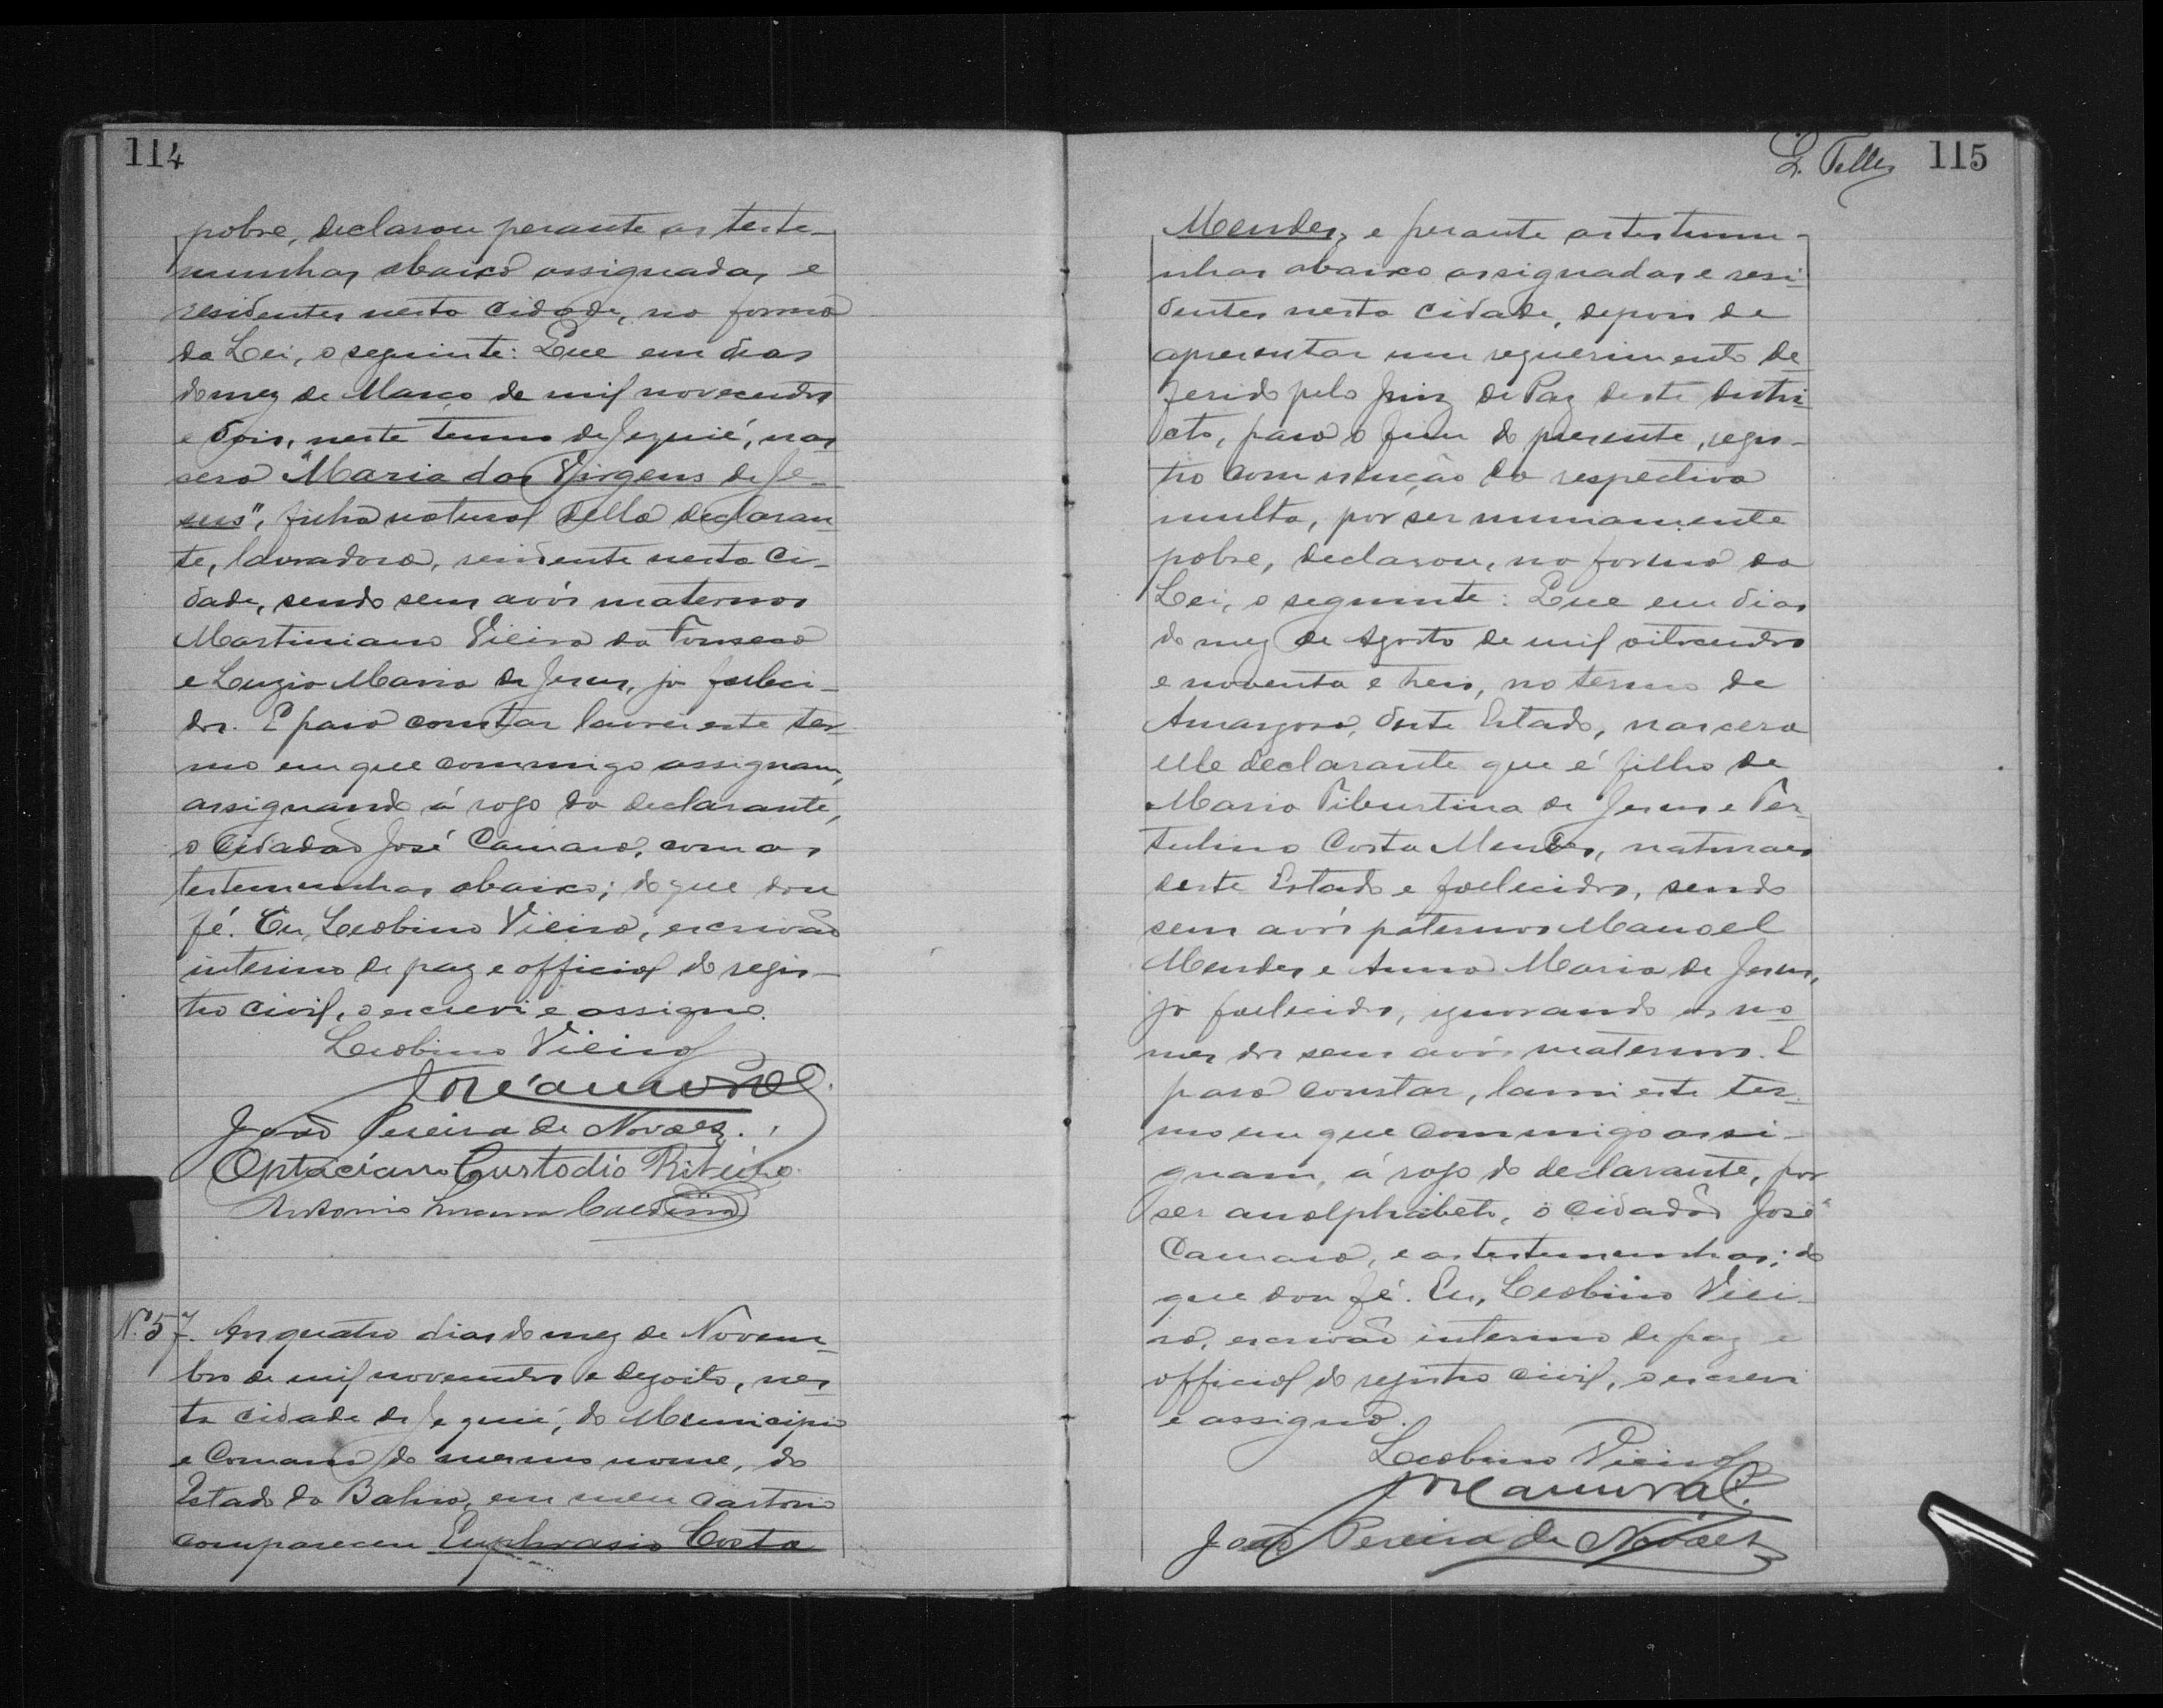 114
pobre, declarou perante as teste-
munhas abaixo assignadas e
residentes nesta cidade, na forma
da Lei, o seguinte: Que em dias
do mez de Março de mil novecentos
e dois, neste termo de Jequié, nas
cera "Maria das Virgens de Je-
sus", filha natural della declaran-
te, lavradora, residente nesta ci-
dade, sendo seus avós maternos
Martiniano Vieira da Fonseca
e Luzia Maria de Jesus, já falleci-
dos. E para constar lavrei este ter-
mo em que commigo assignam,
assignando á rogo da declarante,
o cidadão José Camara, com as
testemunhas abaixo; do que dou
fé. Eu, Leobino Vieira, escrivão
interino de paz e official do regis-
tro civil, o escrevi e assigno.
Leobino Vieira
João Pereira de Novaes.
Optaciano Custodio Ribeiro
Antonio
Nº 57. Aos quatro dias do mez de Novem-
bro de mil novecentos e dezoito, nes-
ta cidade de Jequié, do Municipio
e Comarca do mesmo nome, do
Estado da Bahia, em meu cartorio
compareceu Euphrasio Costa
L. Telles 115
Mendes, e perante as testemu-
nhas abaixo assignadas e resi-
dentes nesta cidade, depois de
apresentar um requerimento de-
ferido pelo Juiz de Paz deste distri-
cto, para o fim do presente, regis-
tro com isenção da respectiva
multa, por ser summamente
pobre, declarou, na forma da
Lei, o seguinte: Que em dias
do mez de Agosto de mil oitocentos
e noventa e treis, no termo de
Amargosa, deste Estado, nascera
elle declarante que é filho de
Maria Tiburtina de Jesus e Ter-
tulino Costa Mendes, naturaes
deste Estado e fallecidos, sendo
seus avós paternos Manoel
Mendes e Anna Maria de Jesus,
já fallecidos, ignorando os no-
mes dos seus avós maternos. E
para constar, lavrei este ter-
mo em que commigo assi-
gnam, á rogo do declarante, por
ser analphabeto, o cidadão José
Camara, e as testemunhas; do
que dou fé. Eu, Leobino Viei-
ra, escrivão interino de paz e
official do registro civil, o escrevi
e assigno.
Leobino Vieira
João Pereira de Novaes